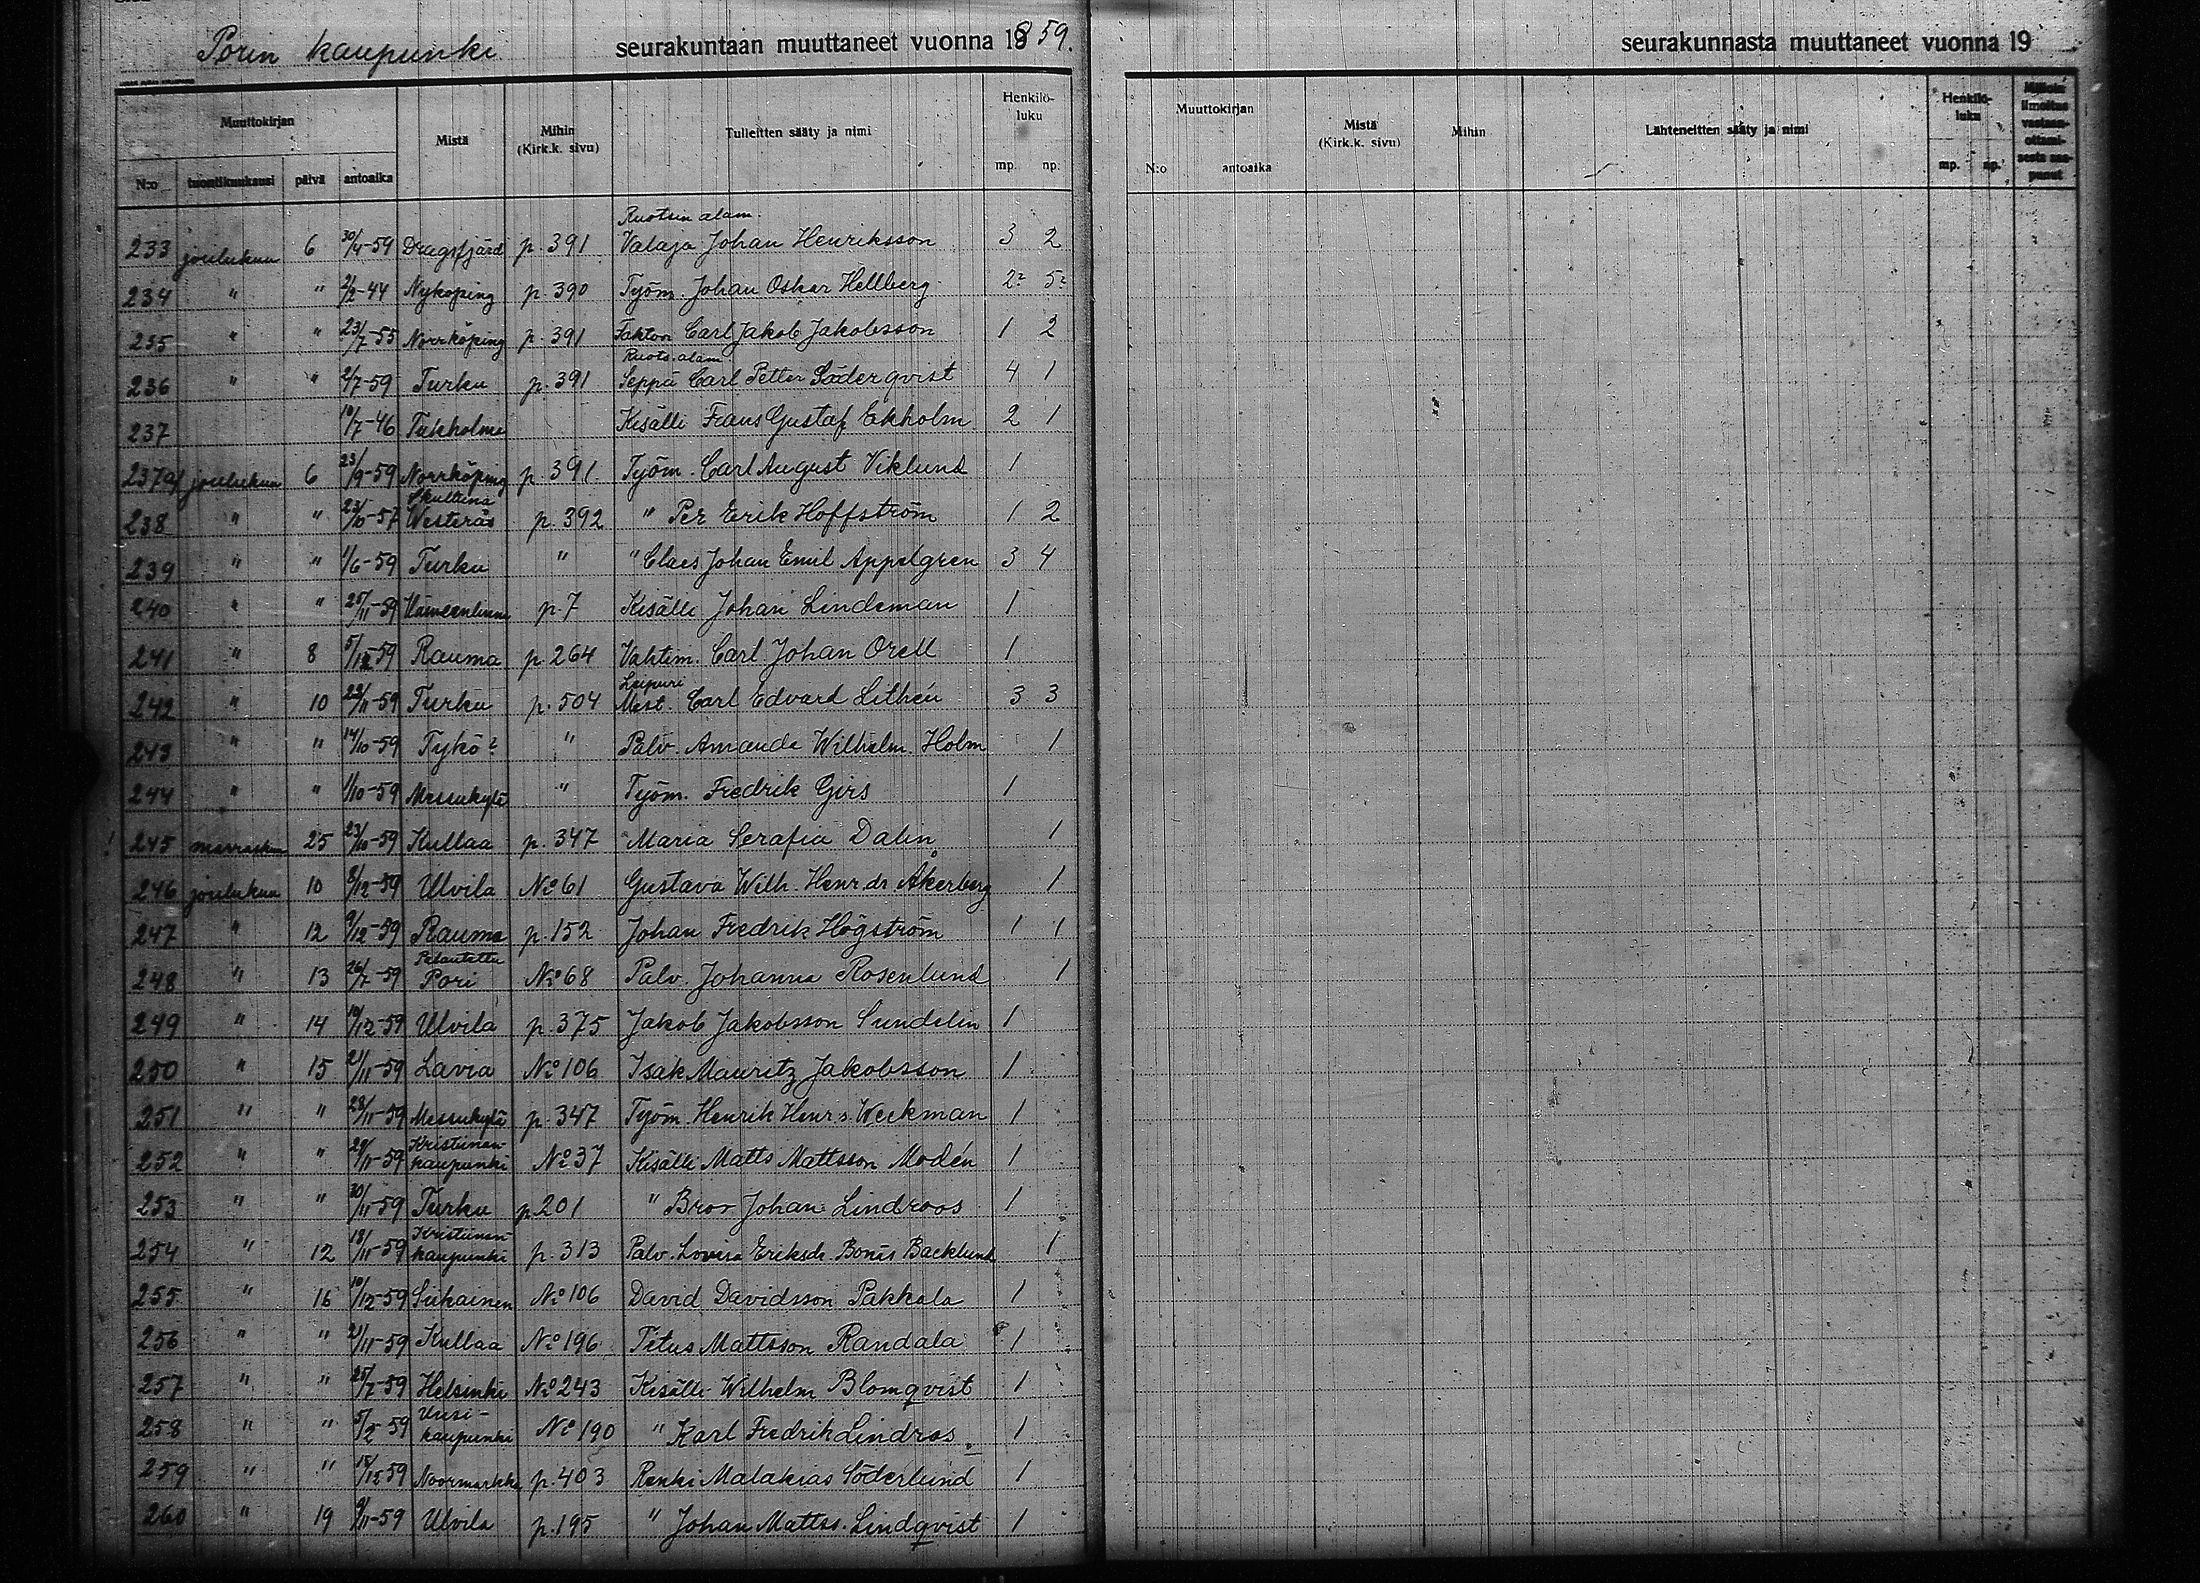 Porin kaupunki seurakuntaan muuttaneet vuonna 1859.
Muuttokirjan Mistä Mihin (Kirk.k. sivu) Tulleitten sääty ja nimi Henkilö-luku
N:o tuontikuukausi päivä antoaika mp. np.
Ruotsin alam.
233 joulukuu 6 30/4-59 Dragsfjärd p. 391 Valaja Johan Henriksson 3 2
234 " " 2/2-44 Nyköping p. 390 Työm. Johan Oskar Hellberg 2? 5?
235 " " 23/7-55 Norrköping p. 391 Faktori Carl Jakob Jakobsson 1 2
Ruots. alam.
236 " " 2/7-59 Turku p. 391 Seppä Carl Petter Säderqvist 4 1
237 10/7-46 Tukholma Kisälli Frans Gustaf Ekholm 2 1
237a/ joulukuu 6 23/9-59 Norrköping p. 391. Työm. Carl August Viklund 1
Skultuna
238 " " 23/10-57 Westerås p. 392 " Per Erik Hoffström 1 2
239 " " 1/6-59 Turku " " Claes Johan Emil Appelgren 3 4
240 " " 25/11-59 Hämeenlinna p. 7 Kisälli Johan Lindeman 1
241 " 8 5/12-59 Rauma p. 264 Vahtim. Carl Johan Orell 1
Leipuri
242 " 10 22/11-59 Turku p. 504 Mest. Carl Edvard Lithén 3 3
243 " " 14/10-59 Tykö? " Palv. Amanda Wilhelm. Holm 1
244 " " 1/10-59 Messukylä " Työm. Fredrik Girs 1
! 245 marraskuu 25 23/10-59 Kullaa p. 347 Maria Serafia Dalin 1
246 joulukuu 10 8/12-59 Ulvila No 61 Gustava Wilh. Henr.dr Åkerberg 1
247 " 12 9/12-59 Rauma p. 152 Johan Fredrik Högström 1 1
Palautettu
248 " 13 26/7-59 Pori No 68 Palv. Johanna Rosenlund 1
249 " 14 10/12-59 Ulvila p. 375 Jakob Jakobsson Sundelin 1
250 " 15 21/11-59 Lavia No 106 Isak Mauritz Jakobsson 1
251 " " 28/11-59 Messukylä p. 347 Työm. Henrik Henr.s. Weckman 1
Kristiinan-
252 " " 29/11-59 kaupunki No 37 Kisälli Matts Mattsson Modén 1
253 " " 30/11-59 Turku p. 201 " Bror Johan Lindroos 1
Kristiinan-
254 " 12 18/11-59 kaupunki p. 313 Palv. Lovisa Eriksdr. Bonäs Backlund 1
255 " 16 10/12-59 Siikainen No 106 David Davidsson Pakkala 1
256 " " 21/11-59 Kullaa No 196 Titus Mattsson Randala 1
257 " " 25/7-59 Helsinki No 243 Kisälli Wilhelm Blomqvist 1
Uusi-
258 " " 5/2-59 kaupunki No 190 " Karl Fredrik Lindros. 1
259 " " 15/12-59 Noormarkku p. 403 Renki Malakias Söderlund 1
260 " 19 9/11-59 Ulvila p. 195 " Johan Mattss. Lindqvist 1
seurakunnasta muuttaneet vuonna 19
Muuttokirjan Mistä (Kirk.k. sivu) Mihin Lähteneitten sääty ja nimi Henkilö-luku Milloin ilmoitus vastaan-ottami-sesta saa-punut
N:o antoaika mp. np.